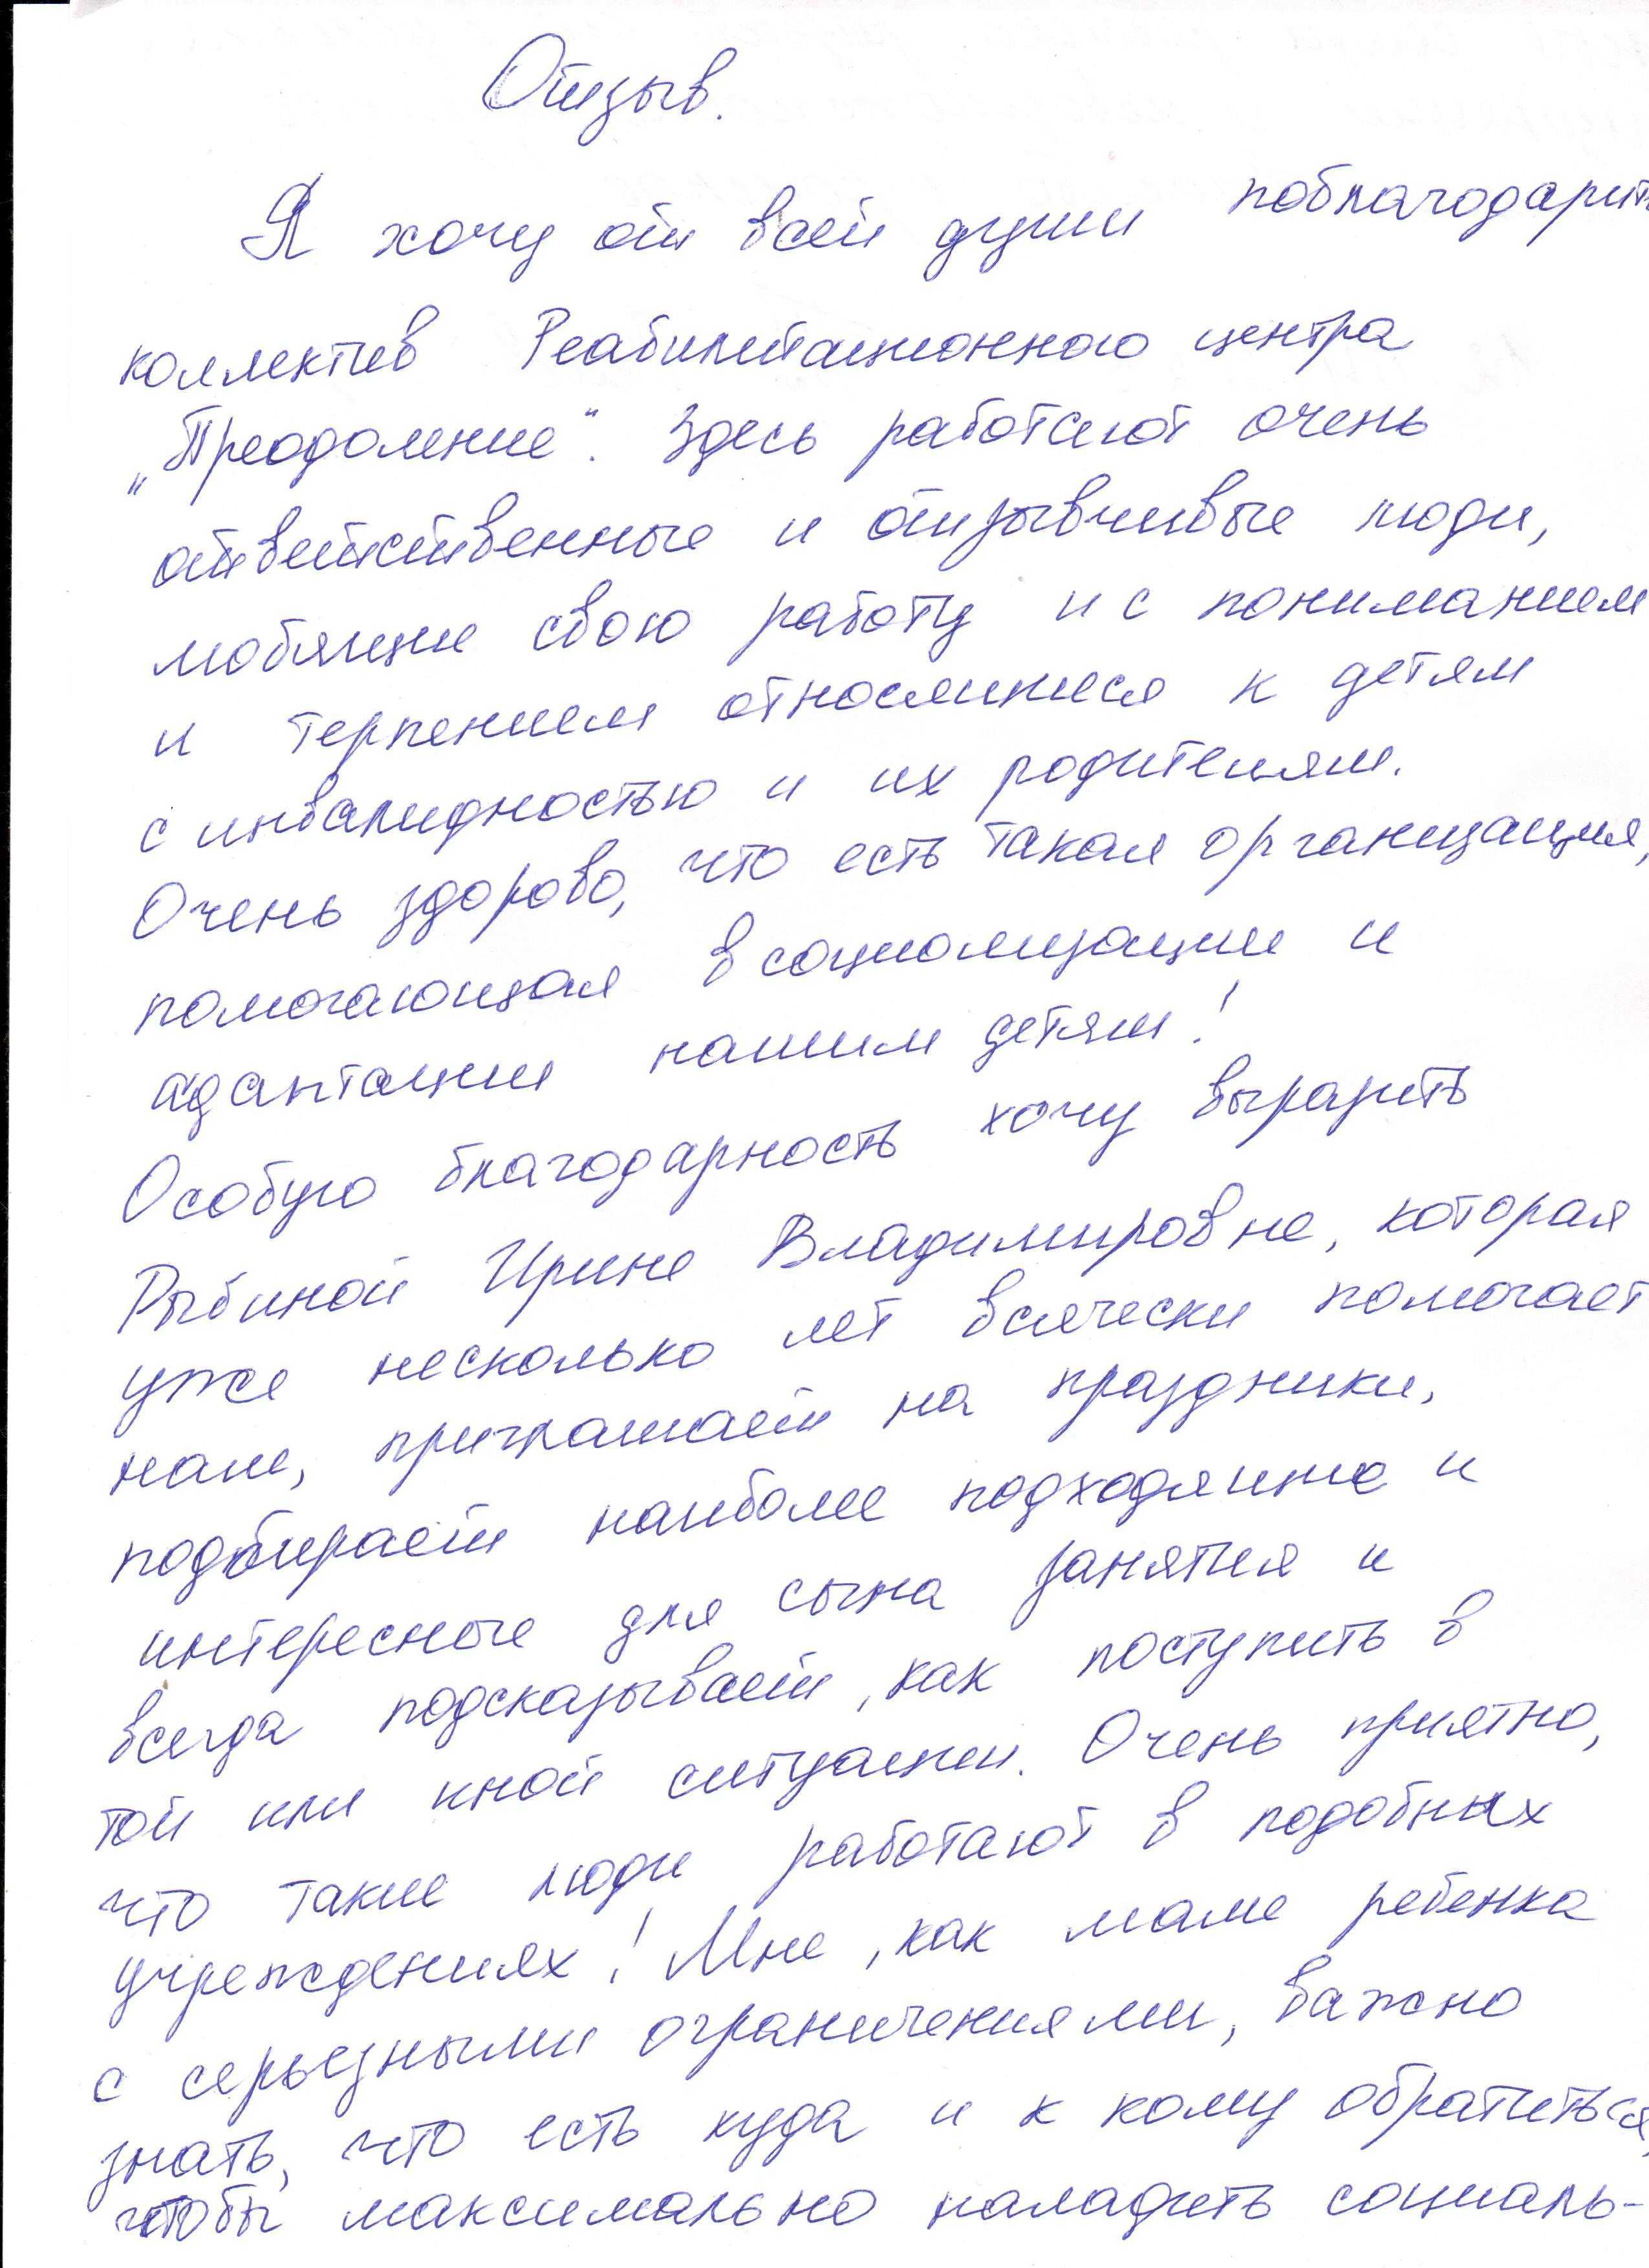 Отзыв.
Я хочу от всей души поблагодарить
коллектив Реабилитационного центра
„Преодоление“. Здесь работают очень
ответственные и отзывчивые люди,
любящие свою работу и с пониманием
и терпением относящиеся к детям
с инвалидностью и их родителям.
Очень здорово, что есть такая организация,
помогающая в социализации и
адаптации нашим детям!
Особую благодарность хочу выразить
Рыбиной Ирине Владимировне, которая
уже несколько лет всячески помогает
нам, приглашает на праздники,
подбирает наиболее подходящие и
интересные для сына занятия и
всегда подсказывает, как поступить в
той или иной ситуации. Очень приятно,
что такие люди работают в подобных
учреждениях! Мне, как маме ребенка
с серьезными ограничениями, важно
знать, что есть куда и к кому обратиться,
чтобы максимально наладить социаль-